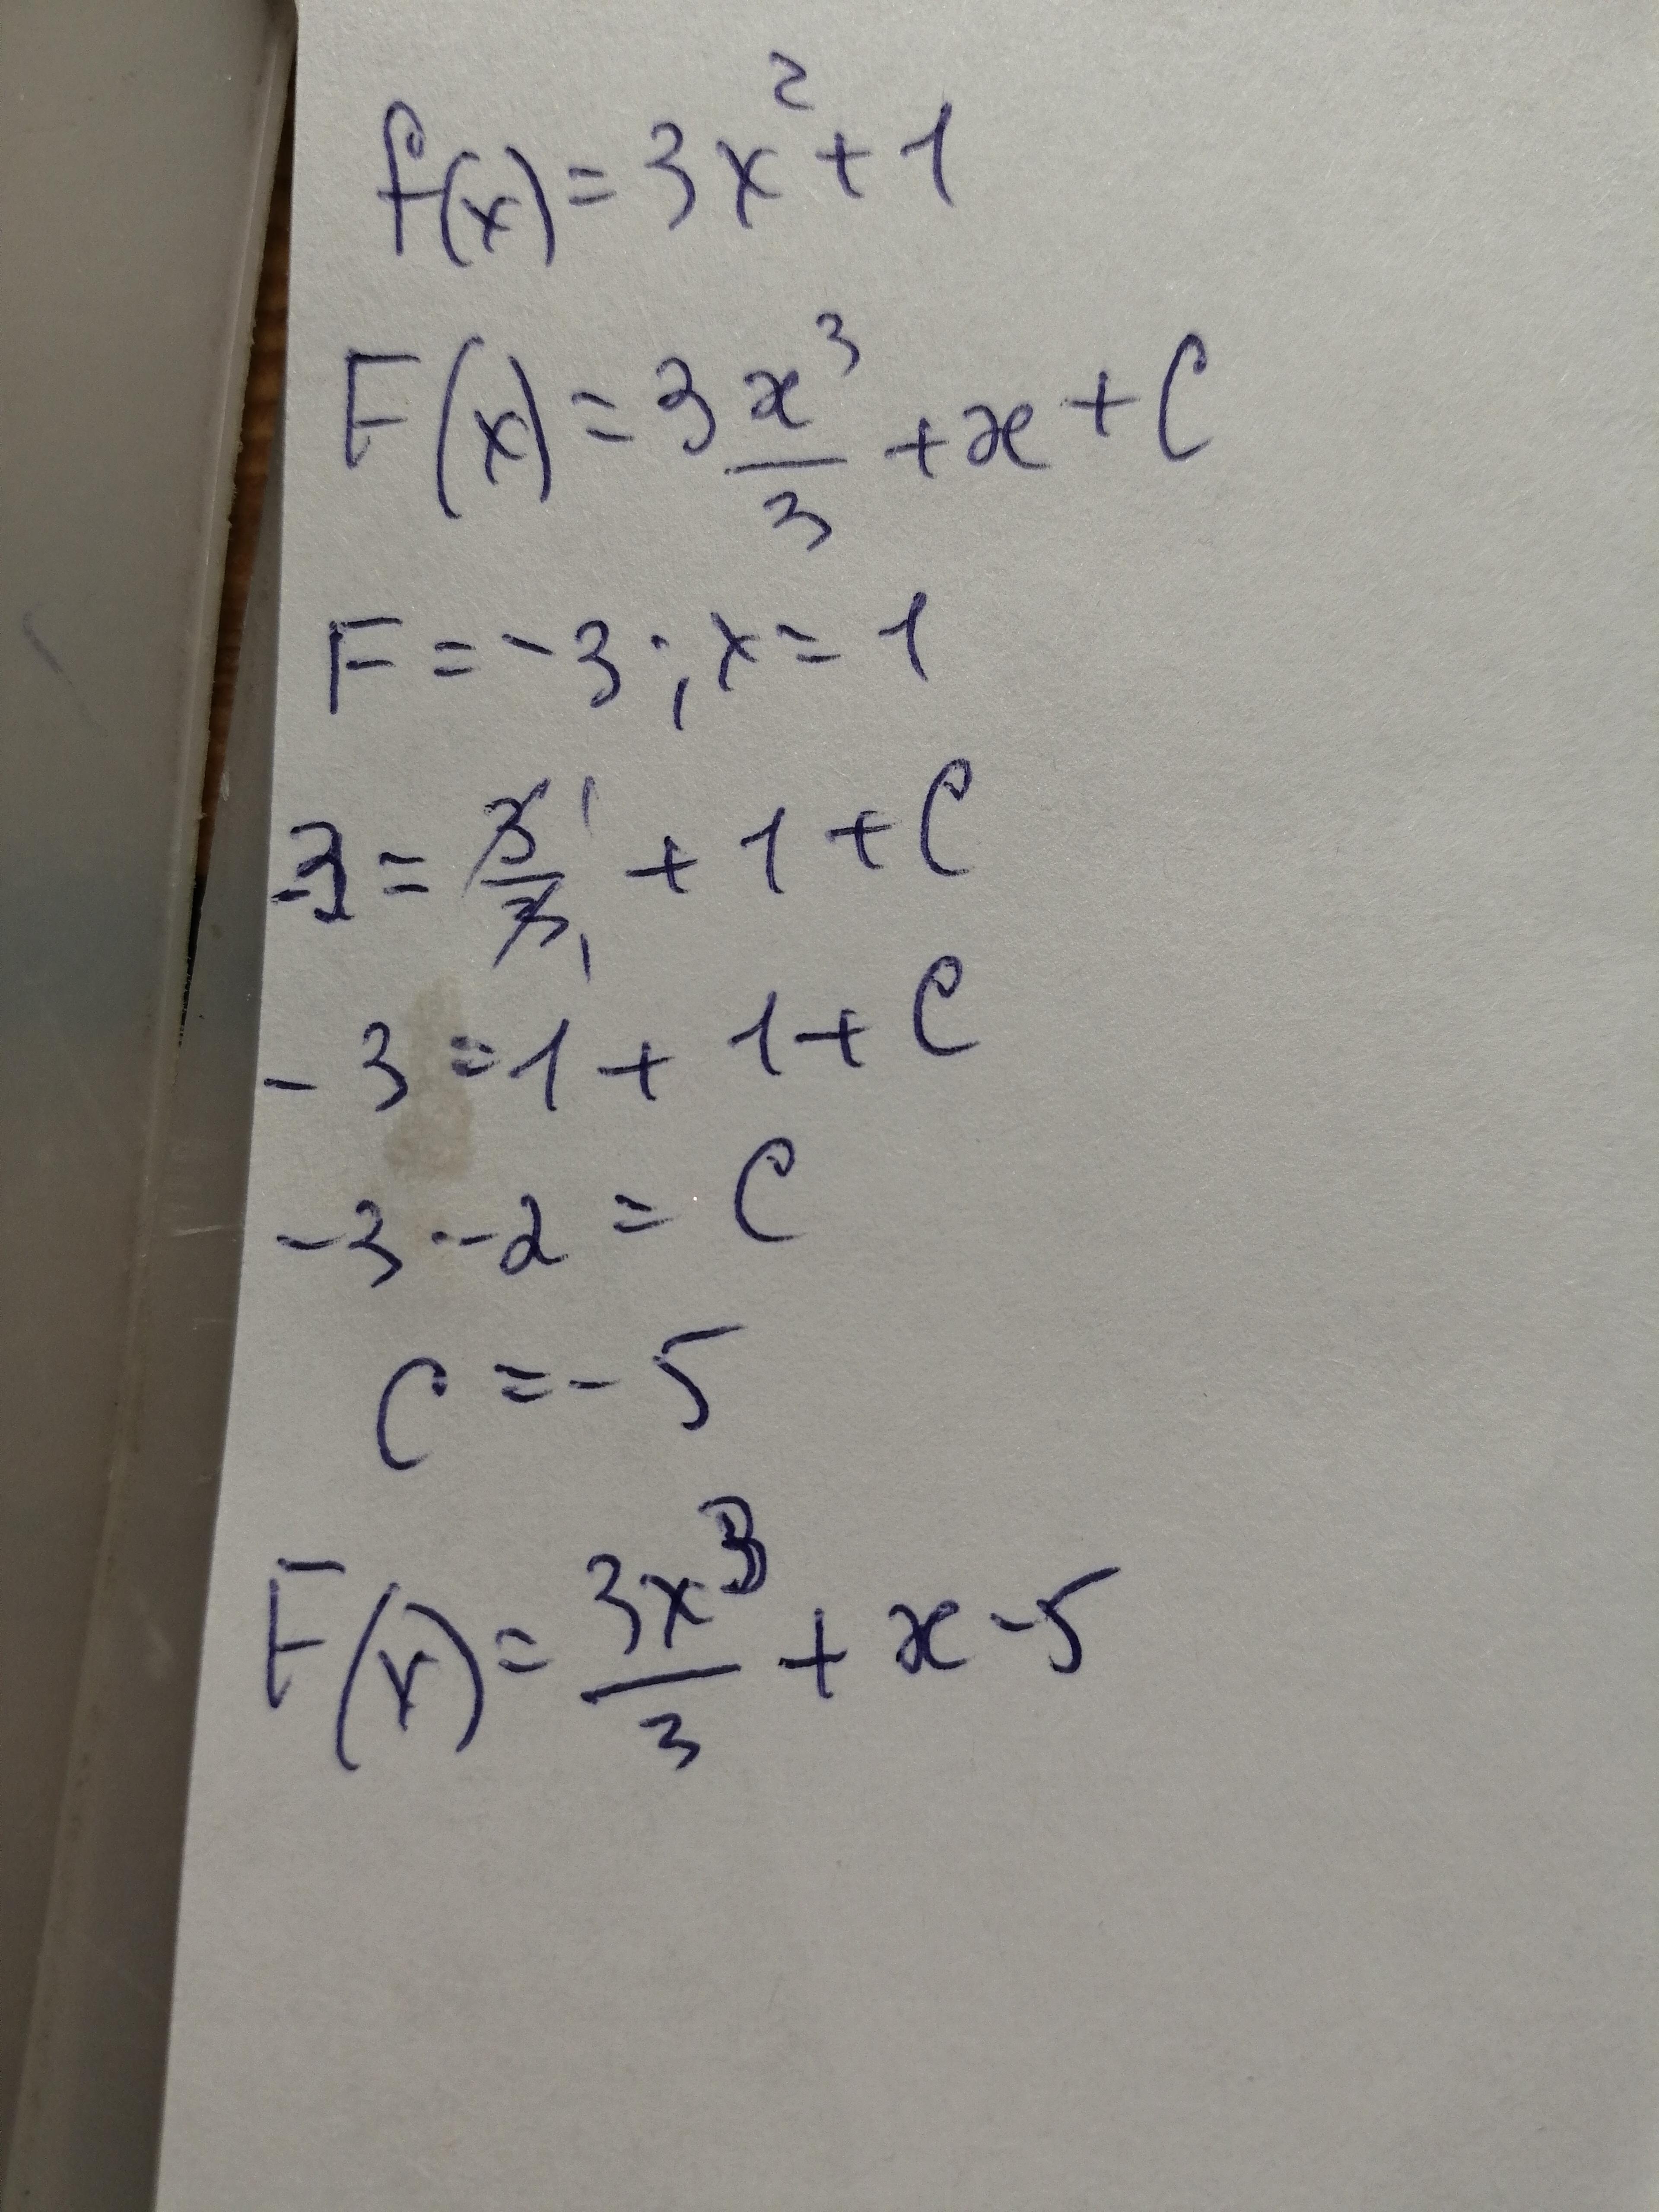 f(x) = 3x² + 1
F(x) = 3 x³/3 + x + C
F = -3; x = 1
-3 = 3/3 1/1 + 1 + C
-3 = 1 + 1 + C
-3 - 2 = C
C = -5
F(x) = 3x³/3 + x - 5